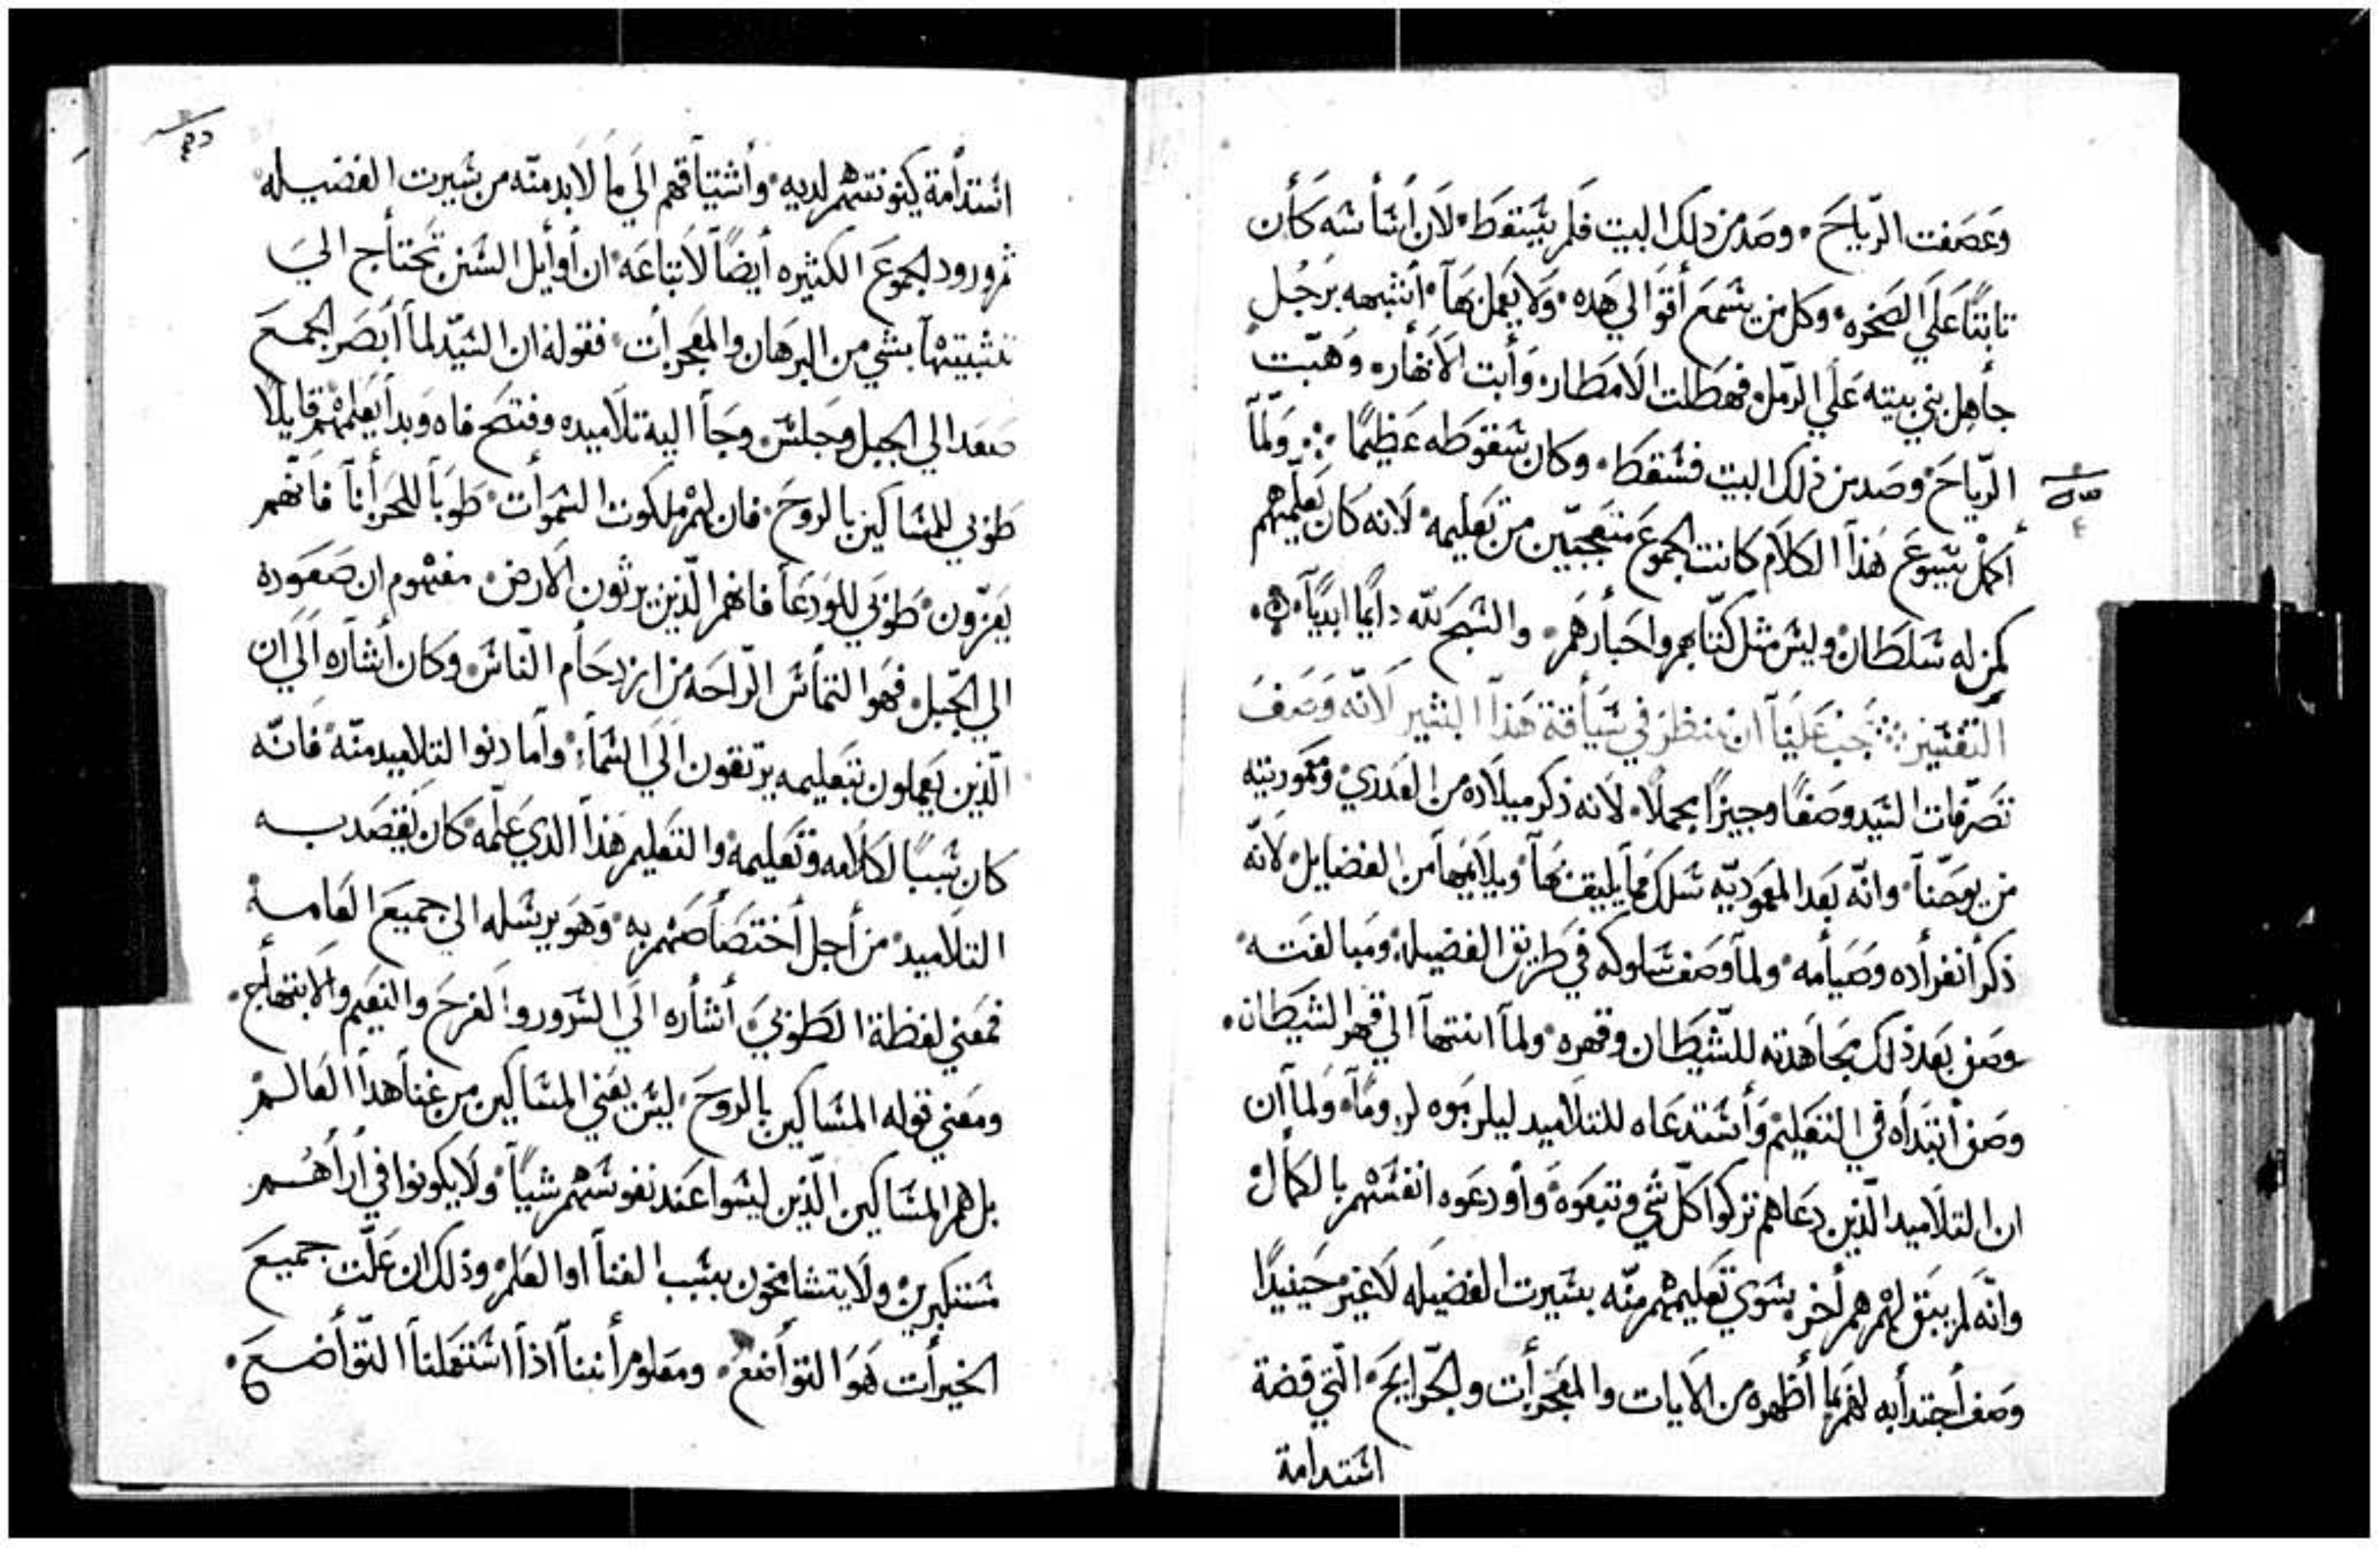 وعصفت الرياح . وصدمن ذلك البيت فلم يسقط . لان اساسه كان
تابتًا علي الصخره . وكل من يسمع أقوالي هده . ولا يعمل بها . اشبهه برجل
جاهل بني بيته علي الرمل . فهطلت الامطار . وأتت الانهار . وهبّت
الرّياح . وصدمن ذلك البيت فسقط . وكان سقوطه عظيمًا ∴ ولمّا
أكمل يسوع هذا الكلام كانت الجموع متعجبّين من تعليمه . لانه كان يعلّمهم
كمن له سلطان . وليس مثل كتّابهم واحبارهم . والسبح لله دايمًا ابديًا .
التفسير ∴ يجب علينا ان ننظر في سياقة هذا البشير لانّه وصف
تصرّفات السيد وصفًا وجيزًا مجملًا . لانه ذكر ميلاده من العدري . ومعموريته
من يوحنّا . وانّه بعد المعموديّه سلك فيما يليق بها . ويلايمها من الفضايل . لانّه
ذكر أنفراده وصيامه . ولما وصف سلوكه في طريق الفضيله . ومبالغته
وصف بعد ذلك مجاهدته للشيطان وقهره . ولما انتها الي قهر الشيطان .
وصف أبتداه في التعليم . وأستدعاه للتلاميد ليلزموه لزومًا . ولما ان
ان التلاميد الّذين دعاهم تركوا كلّ شي وتبعوه . وأودعوه انفسهم بالكمال
وانّه لم يبق لهم هم أخر . سوي تعليمهم منّه بسيرت الفضيله لا غير . حينيدًا
وصف أجتدابه لهم بما أظهره من الايات والمعجزات والجرايح . الّتي قضة
استدامة
استدامة كينونتهم لديه . وأشتياقهم الي ما لابد منّه من سيرت الفضيله
ثم ورود الجموع الكثيره أيضًا لاتباعه . ان أوأيل السنن تحتاج الي
تثبيتها بشي من البرهان والمعجزات . فقوله ان السيّد لما أبصر الجمع
صعد الي الجبل وجلس . وجا اليه تلاميده وفتح فاه وبدا يعلمهم قايلا
طوبي للمساكين بالروح . فان لهم ملكوت السموات . طوبا للحزانا فانهم
يعزّون . طوبي للودعا فانهم الّذين يرثون الارض . مفهوم ان صعوده
الي الجبل . فهو التماس الرّاحه من ازدحام النّاس . وكان أشاره الي ان
الّذين يعملون بتعليمه يرتقون الي السما . وأما دنوا التلاميد منّه . فانّه
كان سببًا لكلامه وتعليمه . والتعليم هذا الدي علّمه . كان يقصد به
التلاميد . من أجل أختصاصهم به . وهو يرسله الي جميع العامة
فمعني لفظة الطوبي . أشاره الي السرور والفرح والنعيم والابتهاج .
ومعني قوله المساكين بالروح . ليس يعني المساكين من غنا هدا العالم
بل هم المساكين الّذين ليسوا عند نفوسهم شيًا . ولا يكونوا في أراهم
مستكبرين . ولا يتشامخون بسبب الغنا اوا العلم . وذلك ان علّت جميع
الخيرات هو التواضع . ومعلوم أننا اذا استعملنا التواضع .